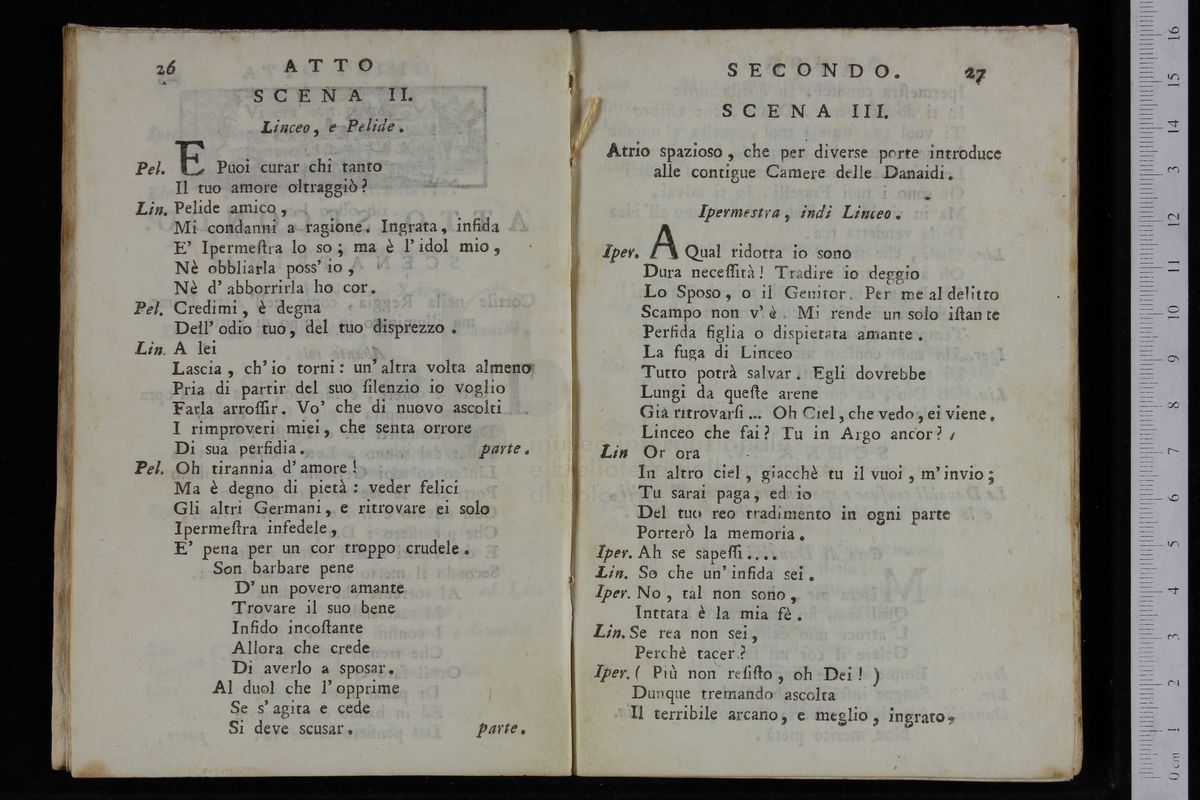 26
ATTO
SCENA II.
Linceo, e Pelide.
Pel. E Puoi curar chi tanto
Il tuo amore oltraggiò?
Lin. Pelide amico,
Mi condanni a ragione. Ingrata, infida
E' Ipermeſtra lo so; ma è l'idol mio,
Nè obbliarla poss' io,
Nè d' abborrirla ho cor.
Pel. Credimi, è degna
Dell' odio tuo, del tuo disprezzo.
Lin. A lei
Lascia, ch' io torni: un' altra volta almeno
Pria di partir del suo ſilenzio io voglio
Farla arroſſir. Vo' che di nuovo ascolti
I rimproveri miei, che senta orrore
Di sua perfidia. parte.
Pel. Oh tirannia d' amore!
Ma è degno di pietà: veder felici
Gli altri Germani, e ritrovare ei solo
Ipermeſtra infedele,
E' pena per un cor troppo crudele.
Son barbare pene
D' un povero amante
Trovare il suo bene
Infido incoſtante
Allora che crede
Di averlo a sposar.
Al duol che l' opprime
Se s' agita e cede
Si deve scusar. parte.
SECONDO. 27
SCENA III.
Atrio spazioso, che per diverse porte introduce
alle contigue Camere delle Danaidi.
Ipermestra, indi Linceo.
Iper. A Qual ridotta io sono
Dura neceſſità! Tradire io deggio
Lo Sposo, o il Genitor. Per me al delitto
Scampo non v' è. Mi rende un solo iſtante
Perfida figlia o dispietata amante.
La fuga di Linceo
Tutto potrà salvar. Egli dovrebbe
Lungi da queſte arene
Già ritrovarſi ... Oh Ciel, che vedo, ei viene.
Linceo che fai? Tu in Argo ancor?
Lin Or ora
In altro ciel, giacchè tu il vuoi, m' invio;
Tu sarai paga, ed io
Del tuo reo tradimento in ogni parte
Porterò la memoria.
Iper. Ah se sapeſſi....
Lin. So che un' infida sei.
Iper. No, tal non sono,
Intrata è la mia fè.
Lin. Se rea non sei,
Perchè tacer?
Iper. ( Più non reſiſto, oh Dei! )
Dunque tremando ascolta
Il terribile arcano, e meglio, ingrato,